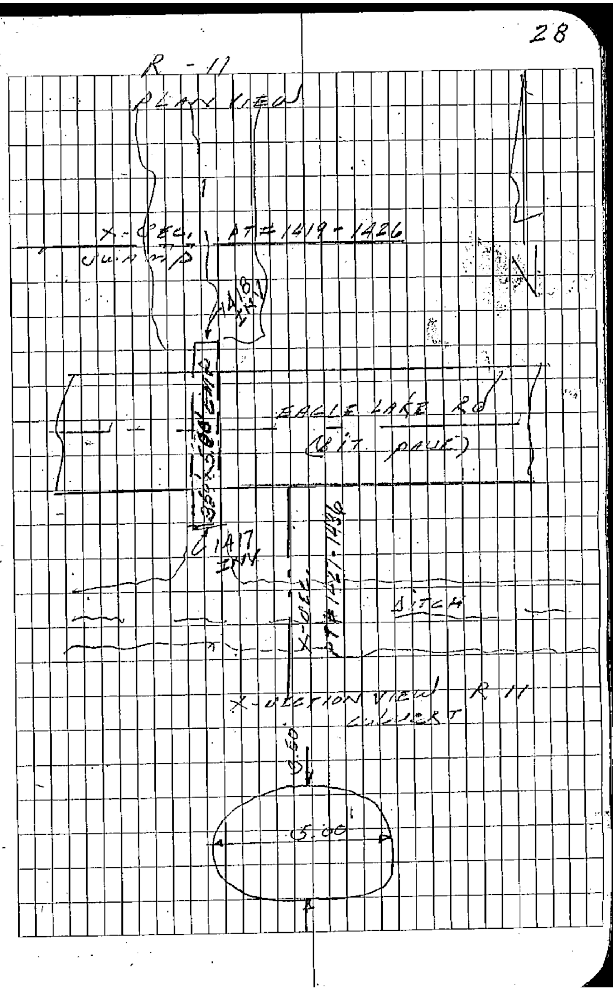 28
R - 11
PLAN VIEW
X-SEC. PT# 1419 - 1426
SWAMP
1418
INV
EAGLE LAKE RD
(BIT. PAVE)
1417
INV
X-SEC.
PT# 1427-1436
DITCH
X-SECTION VIEW R 11
CULVERT
3.50'
5.00'